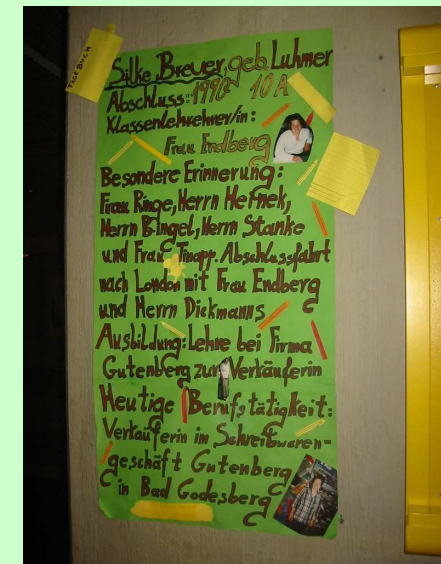 TAGEBUCH
Silke Breuer, geb. Luhmer
Abschluss: 1990 10A
Klassenlehrehrer/in:
Frau Endberg
Besondere Erinnerung:
Frau Ringe, Herrn Hefnek,
Herrn Bingel, Herrn Stanke
und Frau Tinapp. Abschlussfahrt
nach London mit Frau Endberg
und Herrn Dickmanns
Ausbildung: Lehre bei Firma
Gutenberg zur Verkäuferin
Heutige Berufstätigkeit:
Verkäuferin im Schreibwaren-
geschäft Gutenberg
in Bad Godesberg